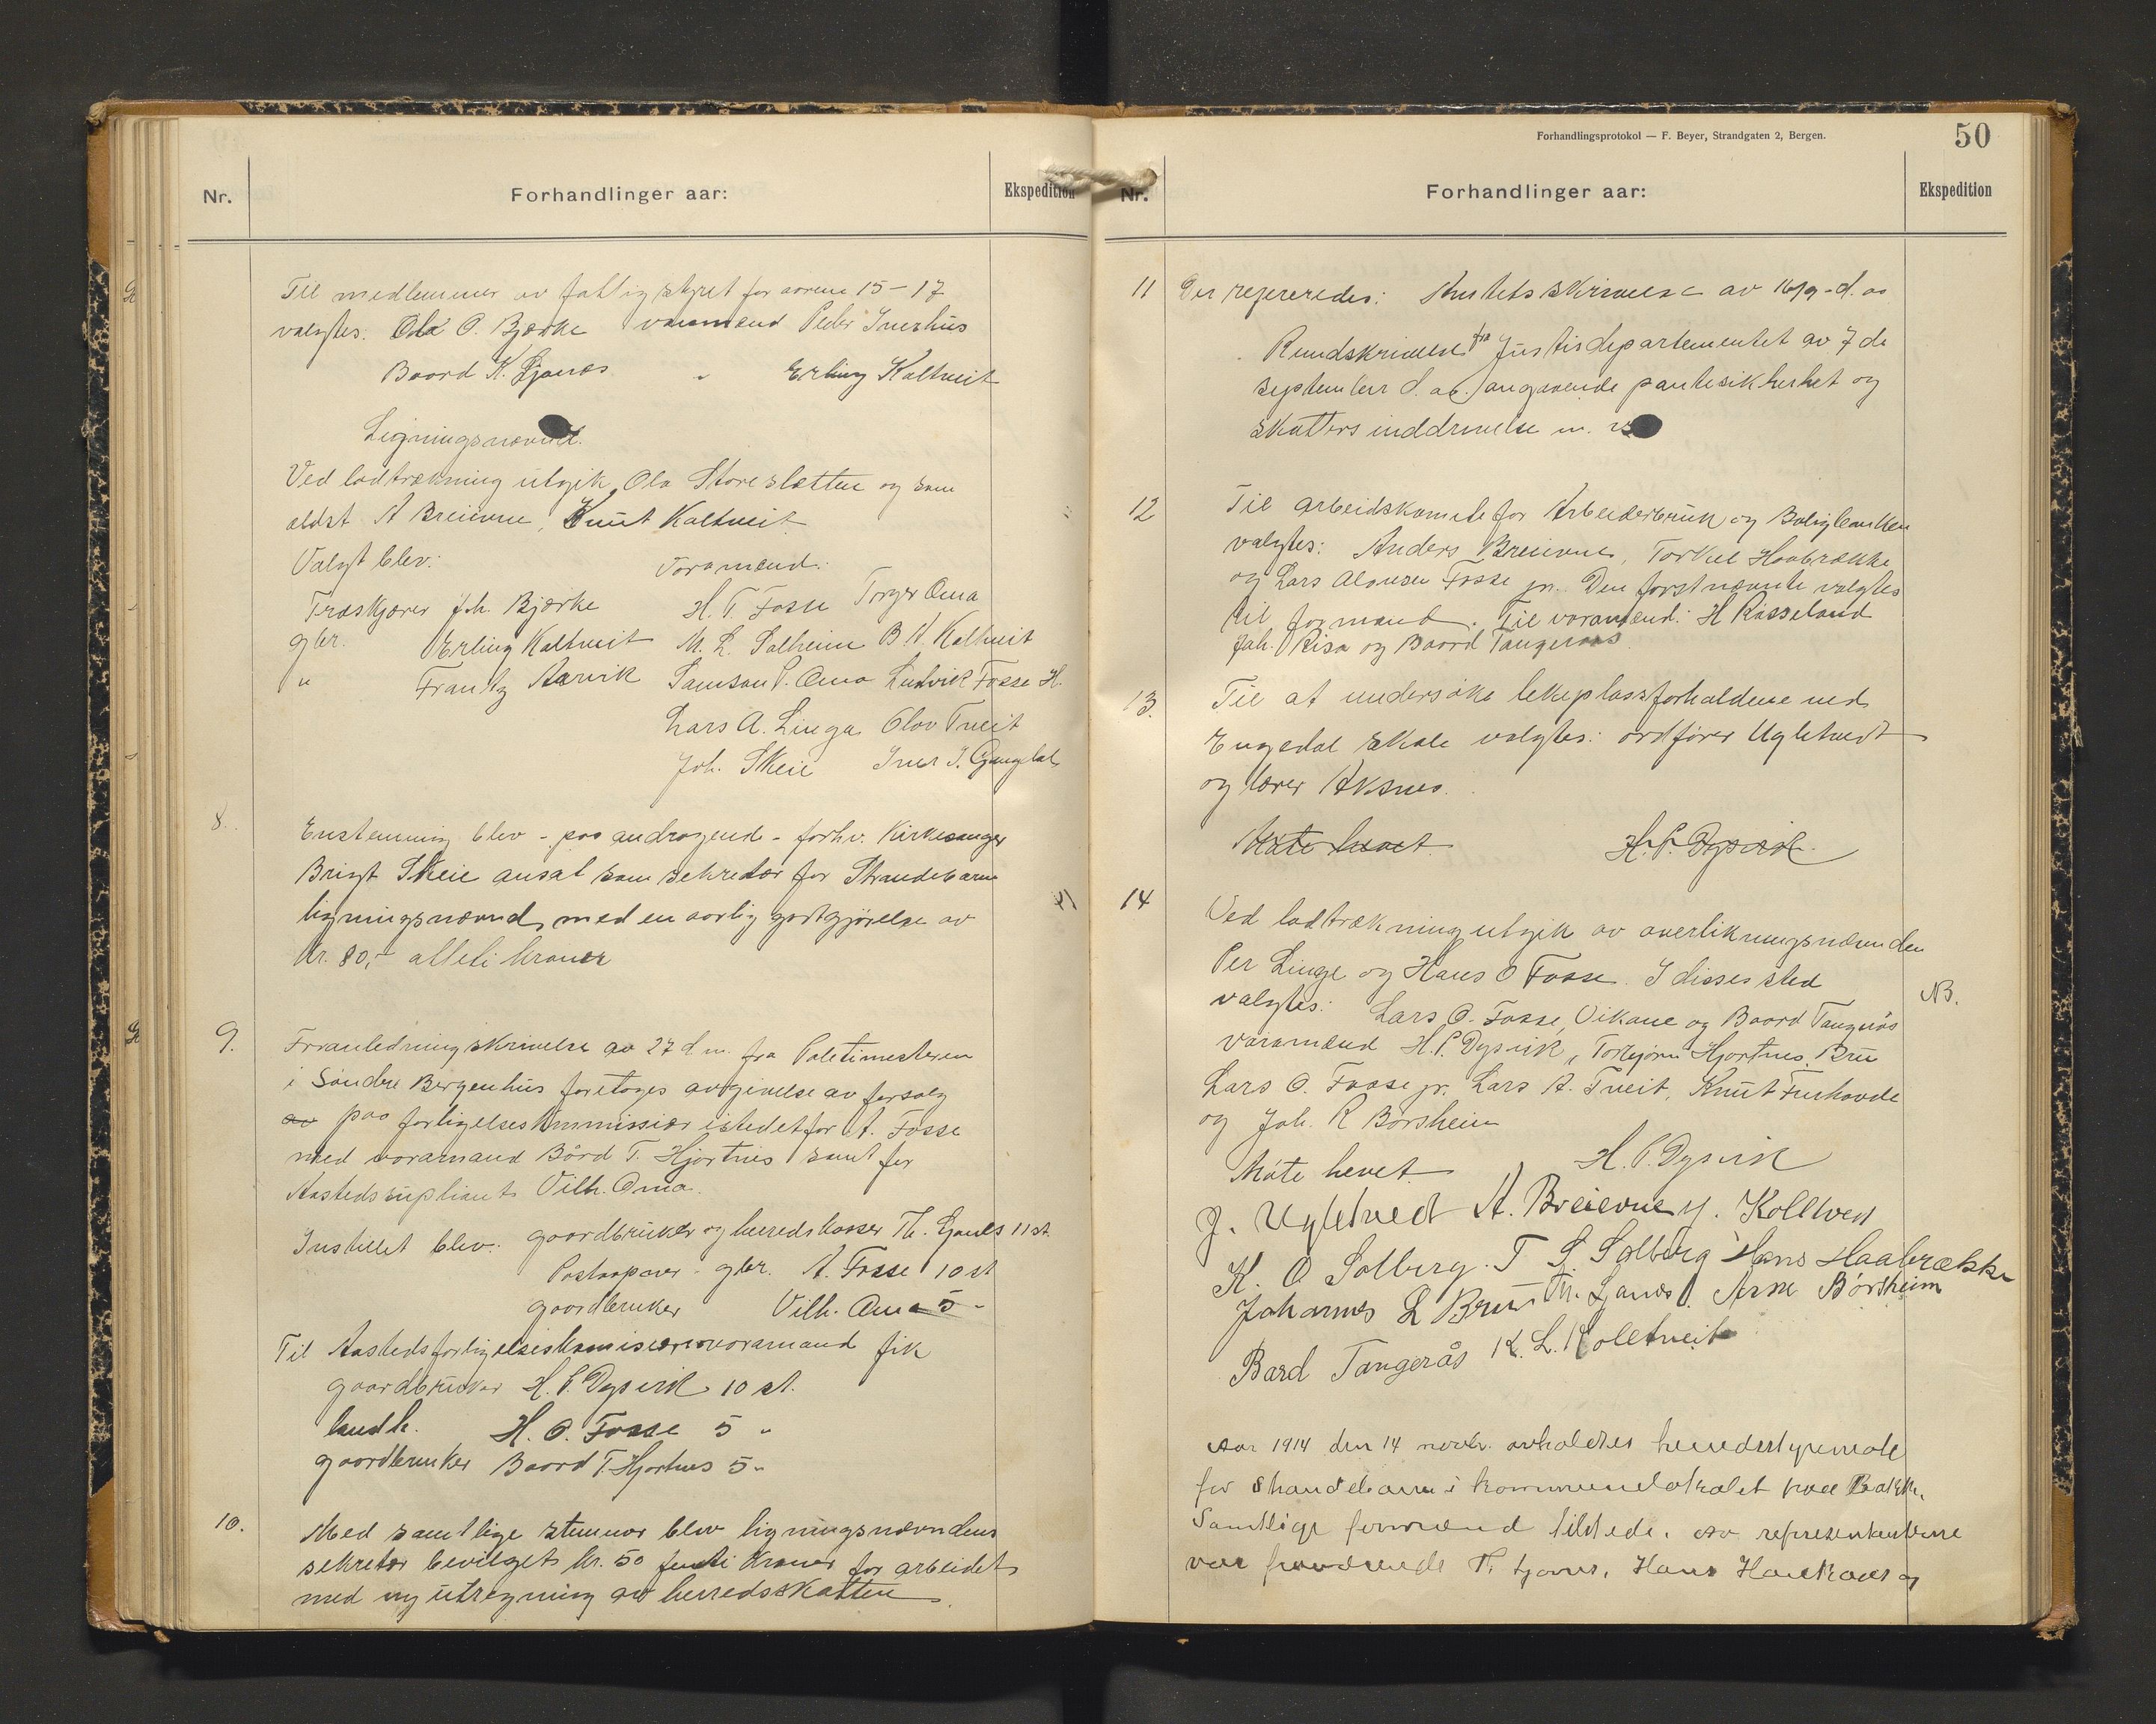 Nr.
Forhandlinger aar:
Ekspedition
Til medlemmer av fattigstyret for aarene 15–17
valgtes: Ola O. Bjerke varamænd Peder Iverhus
Baard K. Ljonæs " Erling Kaltveit
Ligningsnævnd.
Ved lodtrækning utgik Ola Storesletten og som
ældst A Breievne, Knut Kaltveit
Valgt blev: Varamænd:
Træskjærer Joh. Bjerke H. T. Fosse Torger Oma
gbr. Erling Kaltveit M. L. Solheim B K. Kaltveit
" Frantz Aarvik Samson P. Oma Ludvik Fosse H.
Lars A. Linga Olav Tveit
Joh. Skeie Iver I. Gangdal
8. Enstemmig blev - paa andragende - forhv. Kirkesanger
Brigt Skeie ansat som sekretær for Strandebarm
ligningsnævnd med en aarlig godtgjørelse av
Kr. 80,- otteti kroner
9. I anledning skrivelse av 27 d. m. fra Politimesteren
i Søndre Bergenhus foretoges avgivelse av forslag
av paa forligelseskommissær istedetfor A. Fosse
med varamand Bård T. Hjortnes samt for
Aasteds supliant Vilh. Oma.
Instillet blev: gaardbruker og herredskasser Th. Ljonæs 11 st.
Postaapner - gbr. A. Fosse 10 st
gaardbruker Vilh. Oma 5 -
Til Aastedsforligelseskomisærvaramand fik
gaardbruker H. P. Dysvik 10 st.
landh. H. O. Fosse 5 "
gaardbruker Baard T. Hjortnes 5 "
10. Med samtlige stemmer blev ligningsnævndens
sekretær bevilget kr. 50 femti kroner for arbeidet
med ny utregning av herredsskatten.
Forhandlingsprotokol — F. Beyer, Strandgaten 2, Bergen.
50
Nr.
Forhandlinger aar:
Ekspedition
11 Der refereredes: Amtets skrivelse av 16/9 d. aa
Rundskrivelse fra Justisdepartementet av 7de
september d. aa. angaaende pantesikkerhet og
skatters inddrivelse m. v.
12 Til arbeidskomite for Arbeiderbruk og Boligbanken
valgtes: Anders Breievne, Torkel Haabrække
og Lars Alonsen Fosse jr. Den førstnævnte valgtes
til formand. Til varamænd: H Rosseland
Joh. Risa og Baard Tangeraas.
13. Til at undersøke lekeplassforholdene ved
Engedal skole valgtes: ordfører Ugletvedt
og lærer Aksnes.
Møte hævet H. P. Dysvik
14 Ved lodtrækning utgik av overlikningsnævnden
Per Linge og Hans O Fosse. I disses sted
valgtes: Lars O. Fosse, Vikane og Baard Tangerås
NB.
Varamænd H. P. Dysvik, Torbjørn Hjortnes, Bru
Lars O. Fosse jr. Lars A. Tveit, Knut Furhovde
og Joh. R Børsheim
Møte hevet. H. P. Dysvik
J. Ugletvedt A. Breievne Kolltved
K. O Solberg. T S. Solberg Hans Haabrække
Johannes L Bru Th. Ljonæs Arne Børsheim
Bard Tangerås K. L. Koltveit
Aar 1914 den 14 novbr. avholdtes herredsstyremøte
for Strandebarm i kommunelokalet paa Bakke.
Samtlige formænd tilstede. Av representanterne
var fraværende Th. Ljones, Hans og